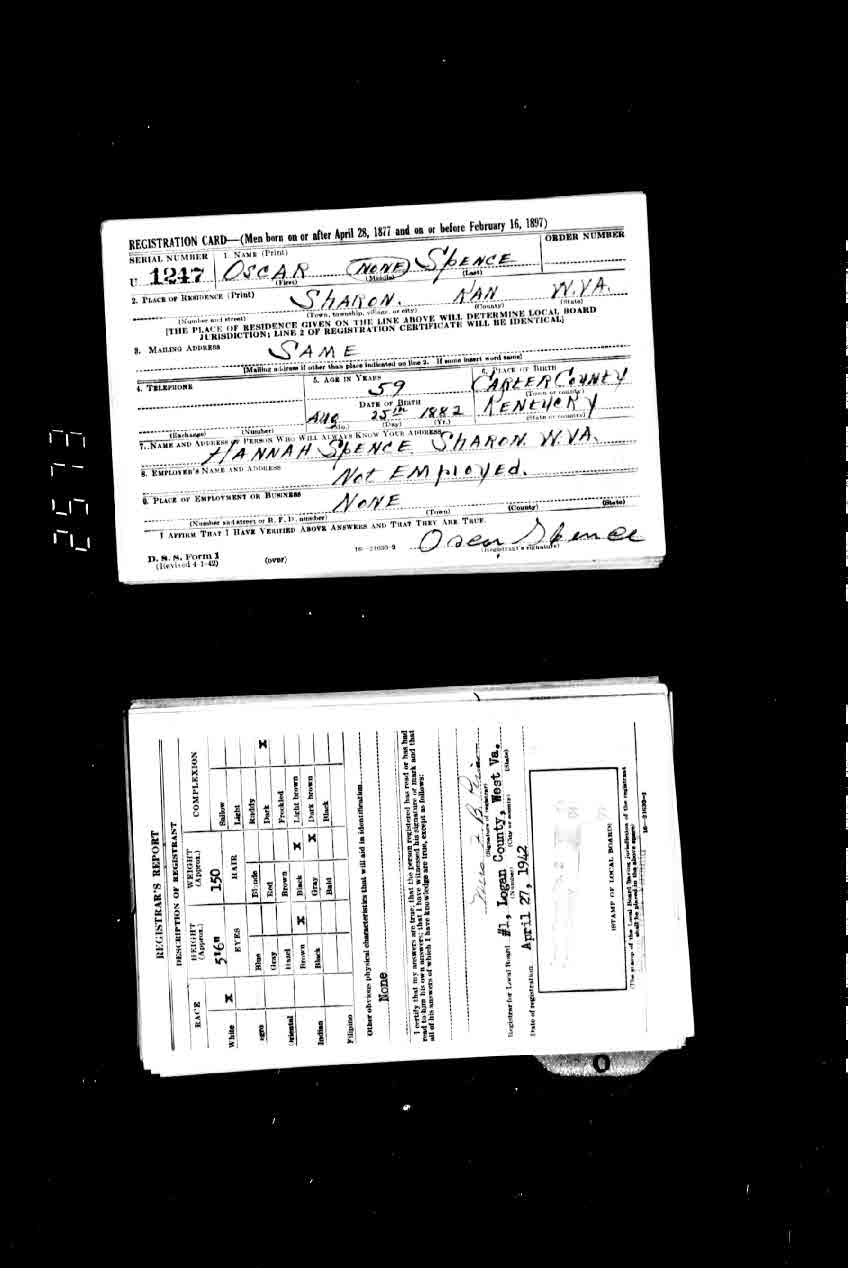 REGISTRATION CARD—(Men born on or after April 28, 1877 and on or before February 16, 1897)
SERIAL NUMBER 1. NAME (Print) ORDER NUMBER
U 1247 OSCAR (NONE) SPENCE
(First) (Middle) (Last)
2. PLACE OF RESIDENCE (Print)
SHARON. KAN W.VA.
(Number and street) (Town, township, village, or city) (County) (State)
[THE PLACE OF RESIDENCE GIVEN ON THE LINE ABOVE WILL DETERMINE LOCAL BOARD
JURISDICTION; LINE 2 OF REGISTRATION CERTIFICATE WILL BE IDENTICAL]
3. MAILING ADDRESS
SAME
[Mailing address if other than place indicated on line 2. If same insert word same]
4. TELEPHONE 5. AGE IN YEARS 6. PLACE OF BIRTH
59 CARTER COUNTY
DATE OF BIRTH (Town or county)
AUG 25th 1882 KENTUCKY
(Exchange) (Number) (Mo.) (Day) (Yr.) (State or country)
7. NAME AND ADDRESS OF PERSON WHO WILL ALWAYS KNOW YOUR ADDRESS
HANNAH SPENCE SHARON. W.VA.
8. EMPLOYER'S NAME AND ADDRESS
Not EMployed.
9. PLACE OF EMPLOYMENT OR BUSINESS
NONE
(Number and street or R. F. D. number) (Town) (County) (State)
I AFFIRM THAT I HAVE VERIFIED ABOVE ANSWERS AND THAT THEY ARE TRUE.
Oscar Spence
D. S. S. Form 1 16—21630-2 (Registrant's signature)
(Revised 4-1-42) (over)
2573
REGISTRAR'S REPORT
DESCRIPTION OF REGISTRANT
RACE HEIGHT (Approx.) WEIGHT (Approx.) COMPLEXION
5'6" 150
White X EYES HAIR Sallow
Light
egro Blue Blonde Ruddy
Gray Red Dark X
Oriental Hazel Brown Freckled
Brown X Black X Light brown
Indian Black Gray X Dark brown
Bald Black
Filipino
Other obvious physical characteristics that will aid in identification
None
I certify that my answers are true; that the person registered has read or has had
read to him his own answers; that I have witnessed his signature or mark and that
all of his answers of which I have knowledge are true, except as follows:
(Signature of registrar)
Registrar for Local Board #1, Logan County, West Va.
(Number) (City or county) (State)
Date of registration April 27, 1942
(STAMP OF LOCAL BOARD)
(The stamp of the Local Board having jurisdiction of the registrant
shall be placed in the above space)
16—21630-1
O